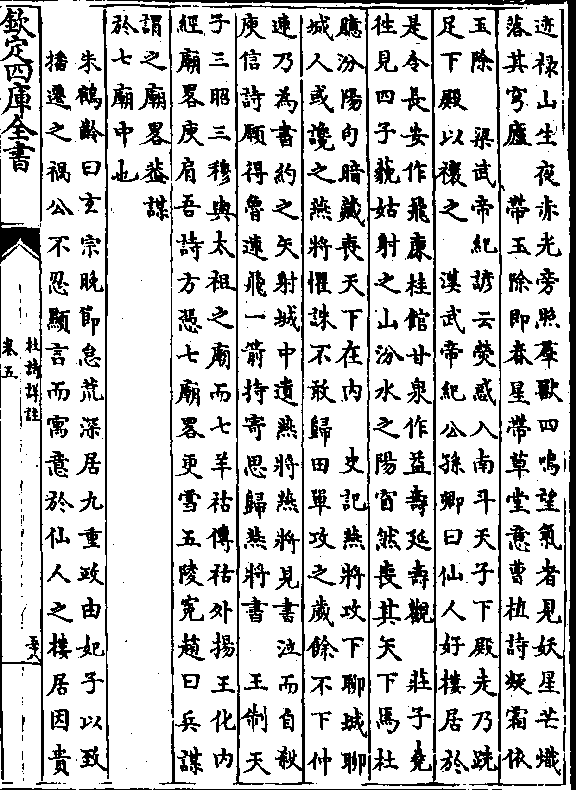 迹祿山生夜赤光旁照羣獸四鳴望氣者見妖星芒熾
落其穹廬　帶玉除即春星帶草堂意曹植詩凝霜依
玉除　梁武帝紀諺云熒惑入南斗天子下殿走乃跣
足下殿以禳之　漢武帝紀公孫卿曰仙人好樓居於
是令長安作飛廉桂館甘泉作益壽延壽觀　莊子堯
往見四子藐姑射之山汾水之陽窅然喪其天下焉杜
臆汾陽句暗藏喪天下在内　史記燕將攻下聊城聊
城人或讒之燕將懼誅不敢歸田單攻之歲餘不下仲
連乃為書約之矢射城中遺燕將燕將見書泣而自殺
庾信詩願得魯連飛一箭持寄思歸燕將書　王制天
子三昭三穆與太祖之廟而七羊祜傳祜外揚王化内
經廟畧庾肩吾詩方憑七廟畧更雪五陵寃趙曰兵謀
謂之廟畧葢謀
於七廟中也
朱鶴齡曰玄宗晚節怠荒深居九重政由妃子以致
播遷之禍公不忍顯言而寓意於仙人之樓居因貴
欽定四庫全書
杜詩詳註
卷五